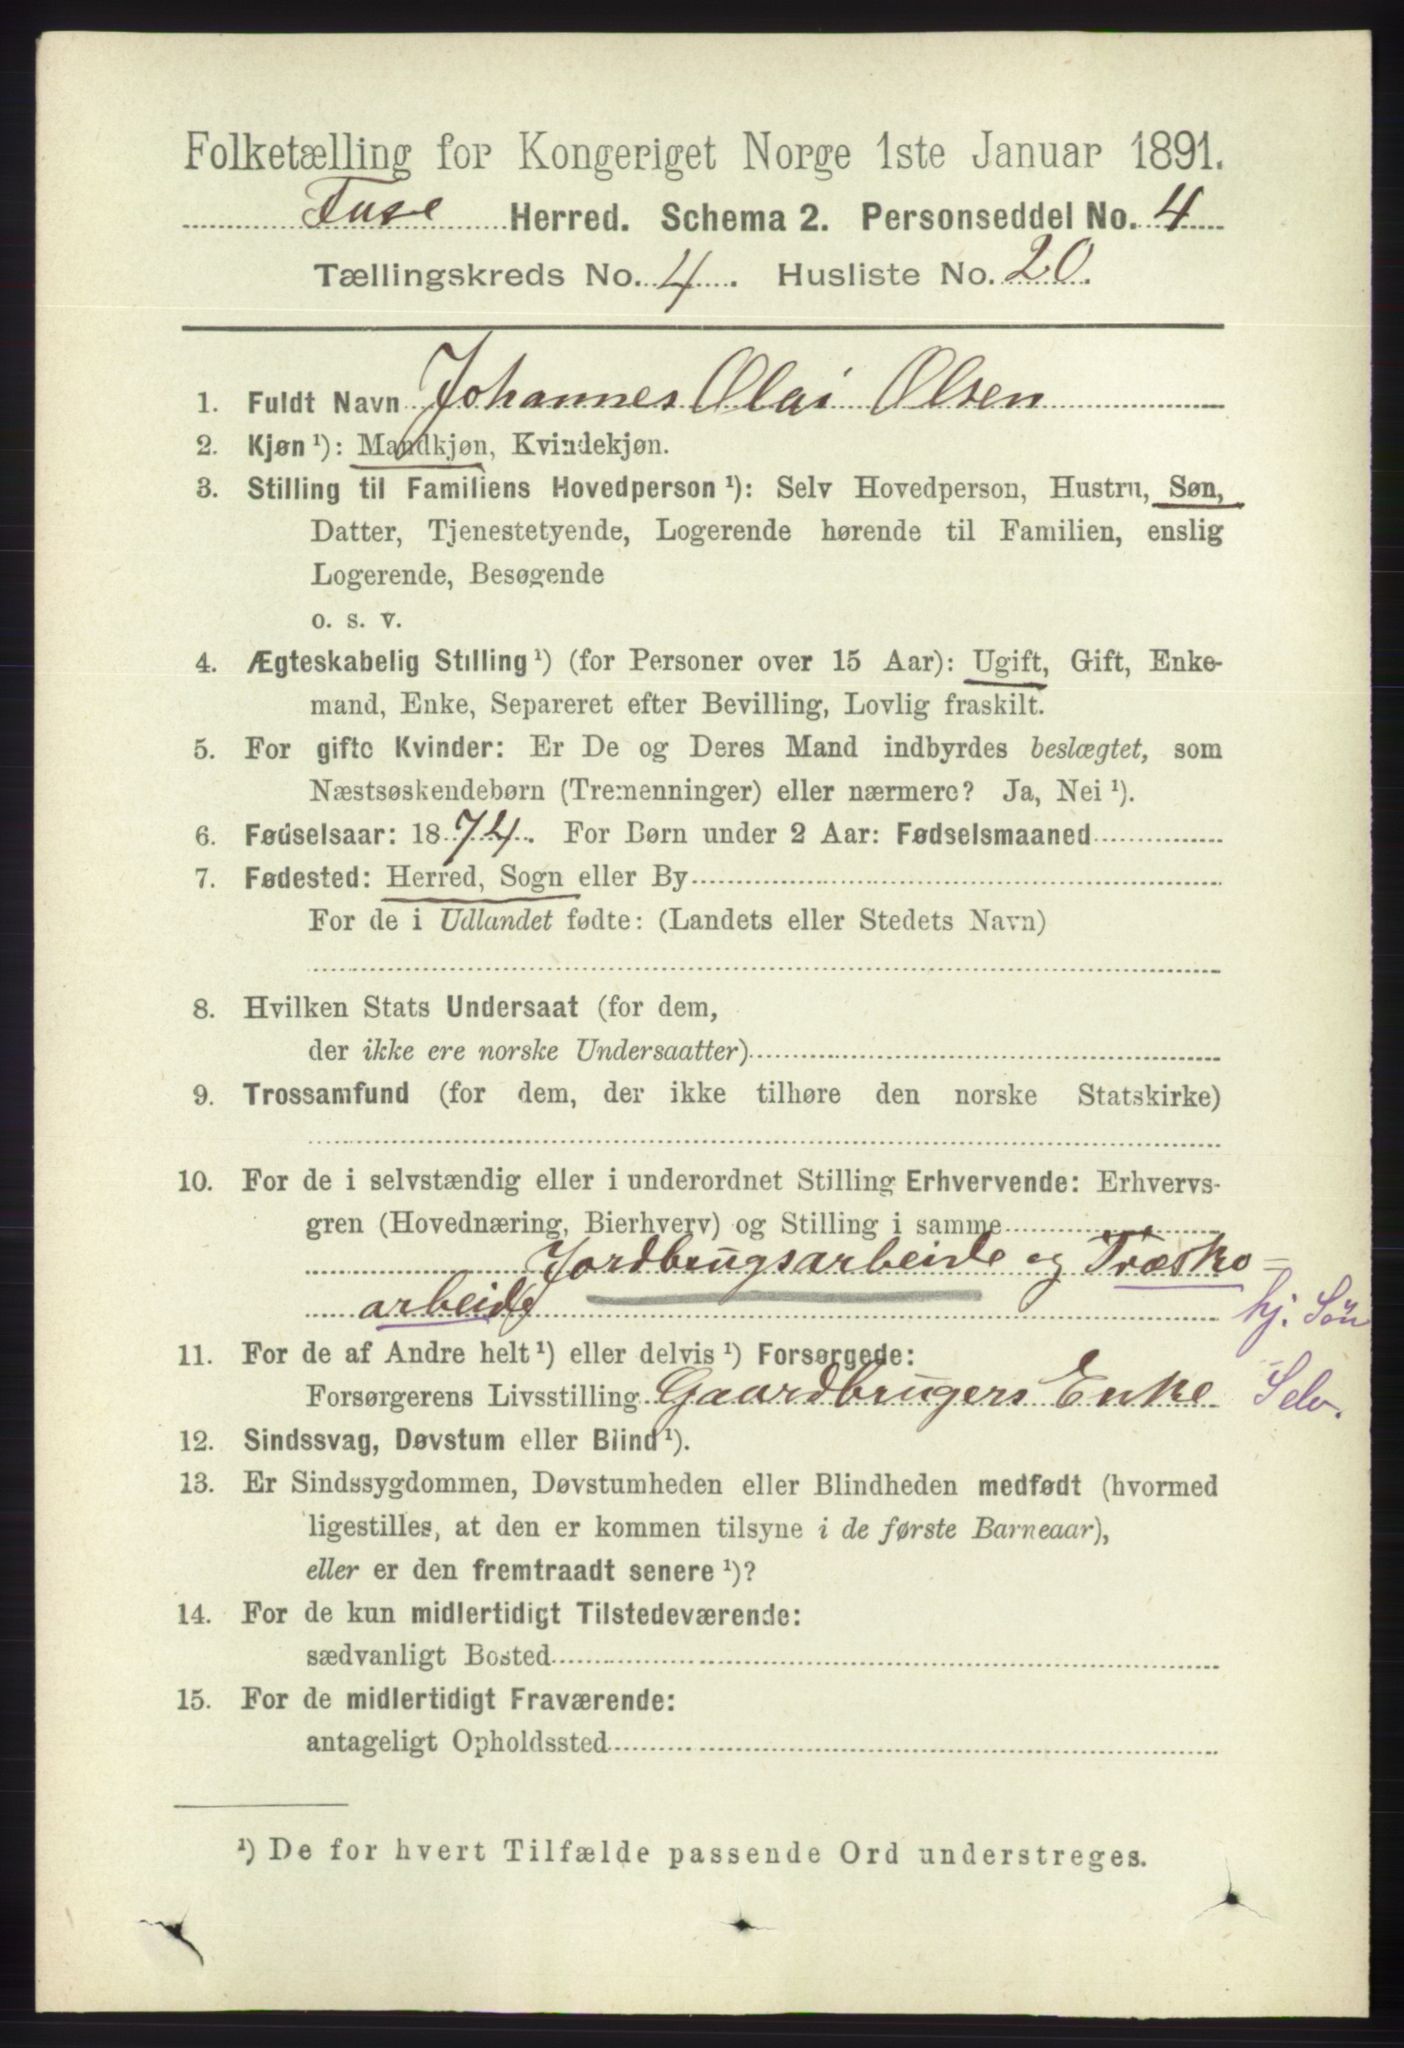 Folketælling for Kongeriget Norge 1ste Januar 1891.
Fuse Herred. Schema 2. Personseddel No. 4
Tællingskreds No. 4. Husliste No. 20.
1. Fuldt Navn Johannes Olai Olsen
2. Kjøn ¹): Mandkjøn, Kvindekjøn.
3. Stilling til Familiens Hovedperson ¹): Selv Hovedperson, Hustru, Søn,
Datter, Tjenestetyende, Logerende hørende til Familien, enslig
Logerende, Besøgende
o. s. v.
4. Ægteskabelig Stilling ¹) (for Personer over 15 Aar): Ugift, Gift, Enke-
mand, Enke, Separeret efter Bevilling, Lovlig fraskilt.
5. For gifte Kvinder: Er De og Deres Mand indbyrdes beslægtet, som
Næstsøskendebørn (Tremenninger) eller nærmere? Ja, Nei ¹).
6. Fødselsaar: 1874. For Børn under 2 Aar: Fødselsmaaned
7. Fødested: Herred, Sogn eller By
For de i Udlandet fødte: (Landets eller Stedets Navn)
8. Hvilken Stats Undersaat (for dem,
der ikke ere norske Undersaatter)
9. Trossamfund (for dem, der ikke tilhøre den norske Statskirke)
10. For de i selvstændig eller i underordnet Stilling Erhvervende: Erhvervs-
gren (Hovednæring, Bierhverv) og Stilling i samme
Jordbrugsarbeide og Træsko=
arbeide hj. Søn
11. For de af Andre helt ¹) eller delvis ¹) Forsørgede:
Forsørgerens Livsstilling Gaardbrugers Enke Selv.
12. Sindssvag, Døvstum eller Blind ¹).
13. Er Sindssygdommen, Døvstumheden eller Blindheden medfødt (hvormed
ligestilles, at den er kommen tilsyne i de første Barneaar),
eller er den fremtraadt senere ¹)?
14. For de kun midlertidigt Tilstedeværende:
sædvanligt Bosted
15. For de midlertidigt Fraværende:
antageligt Opholdssted
¹) De for hvert Tilfælde passende Ord understreges.